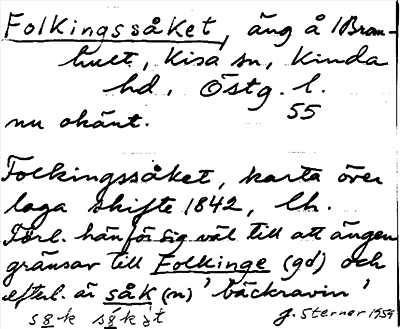 Folkingssåket, äng å Bram-
hult, Kisa sn, Kinda
hd, Östg. l.
55
nu okänt.
Folkingssåket, karta över
laga skifte 1842, lh.
Förl. hänför sig väl till att ängen
gränsar till Folkinge (gd) och
efterl. är såk (n) 'bäckravin'
J. Sterner 1959